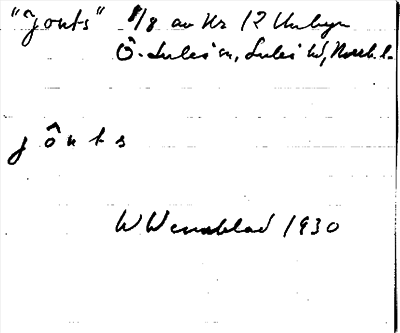 "Jonts" 1/8 av Nr 12 Unbyn
Ö. Luleå sn, Luleå tg, Norrb. l.
j ô n t s
W Wennblad 1930